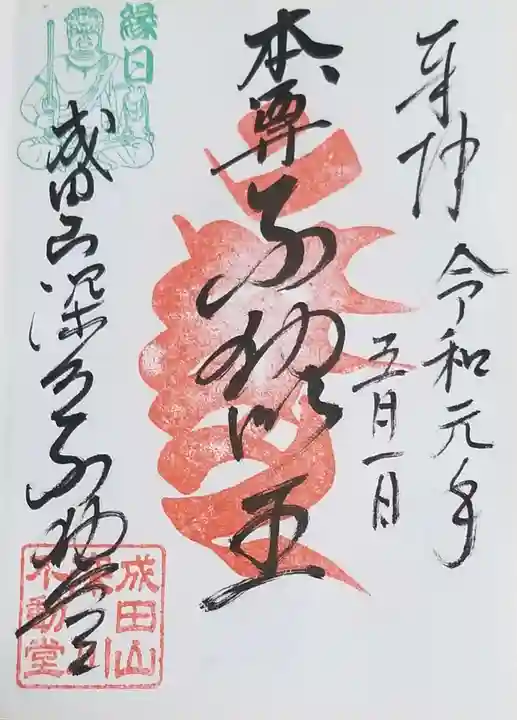 奉拝 令和元年
五月一日
本尊不動明王
縁日
成田山深川不動堂
成田山
深川
不動堂